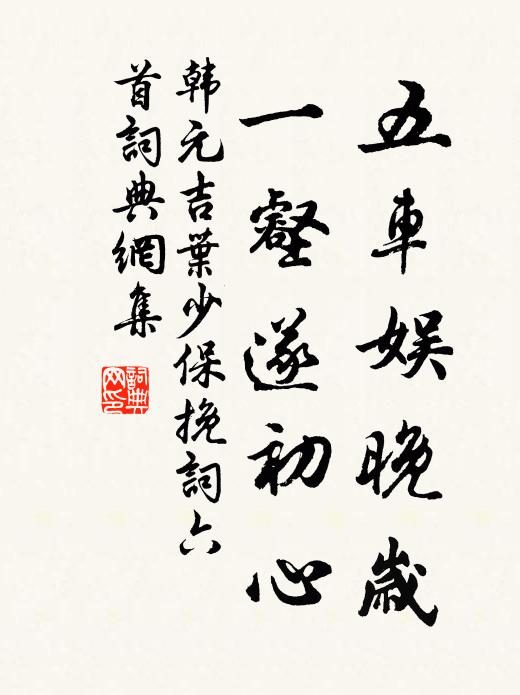 五車娛晚歲
一壑遂初心
韩元吉葉少保挽詞六
首詞典網集
詞典
网印